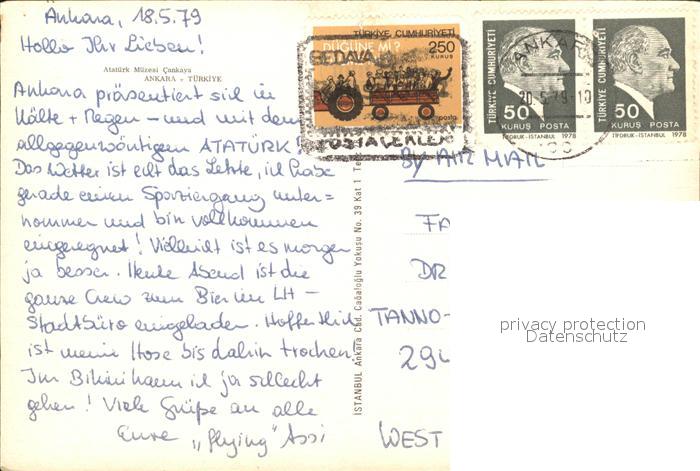 Ankara, 18.5.79
Hallo Ihr Lieben!
Atatürk Müzesi Çankaya
ANKARA - TÜRKİYE
Ankara präsentiert sich in
Kälte + Regen - und mit dem
allgegenwärtigen ATATÜRK!
Das Wetter ist echt das Letzte, ich habe
gerade einen Spaziergang unter=
nommen und bin vollkommen
eingeregnet! Vielleicht ist es morgen
ja besser. Heute Abend ist die
ganze Crew zum Bier im LH -
Stadtbüro eingeladen. Hoffentlich
ist meine Hose bis dahin trocken.
Im Bikini kann ich ja schlecht
gehen! Viele Grüße an alle
Eure „flying" Assi
İSTANBUL Ankara Cad. Cağaloğlu Yokuşu No. 39 Kat 1 Te
TÜRKİYE CUMHURİYETİ
DÜĞÜNE Mİ?
250
KURUŞ
posta
BEDAVA
POSTA ÇEKLERİ
TÜRKİYE CUMHURİYETİ
50
KURUŞ POSTA
TFDRUK-İSTANBUL 1978
TÜRKİYE CUMHURİYETİ
50
KURUŞ POSTA
TFDRUK-İSTANBUL 1978
ANKARA
20.5.79-10
By AIR MAIL
FA
DR
TANNO-
29
WEST
privacy protection
Datenschutz